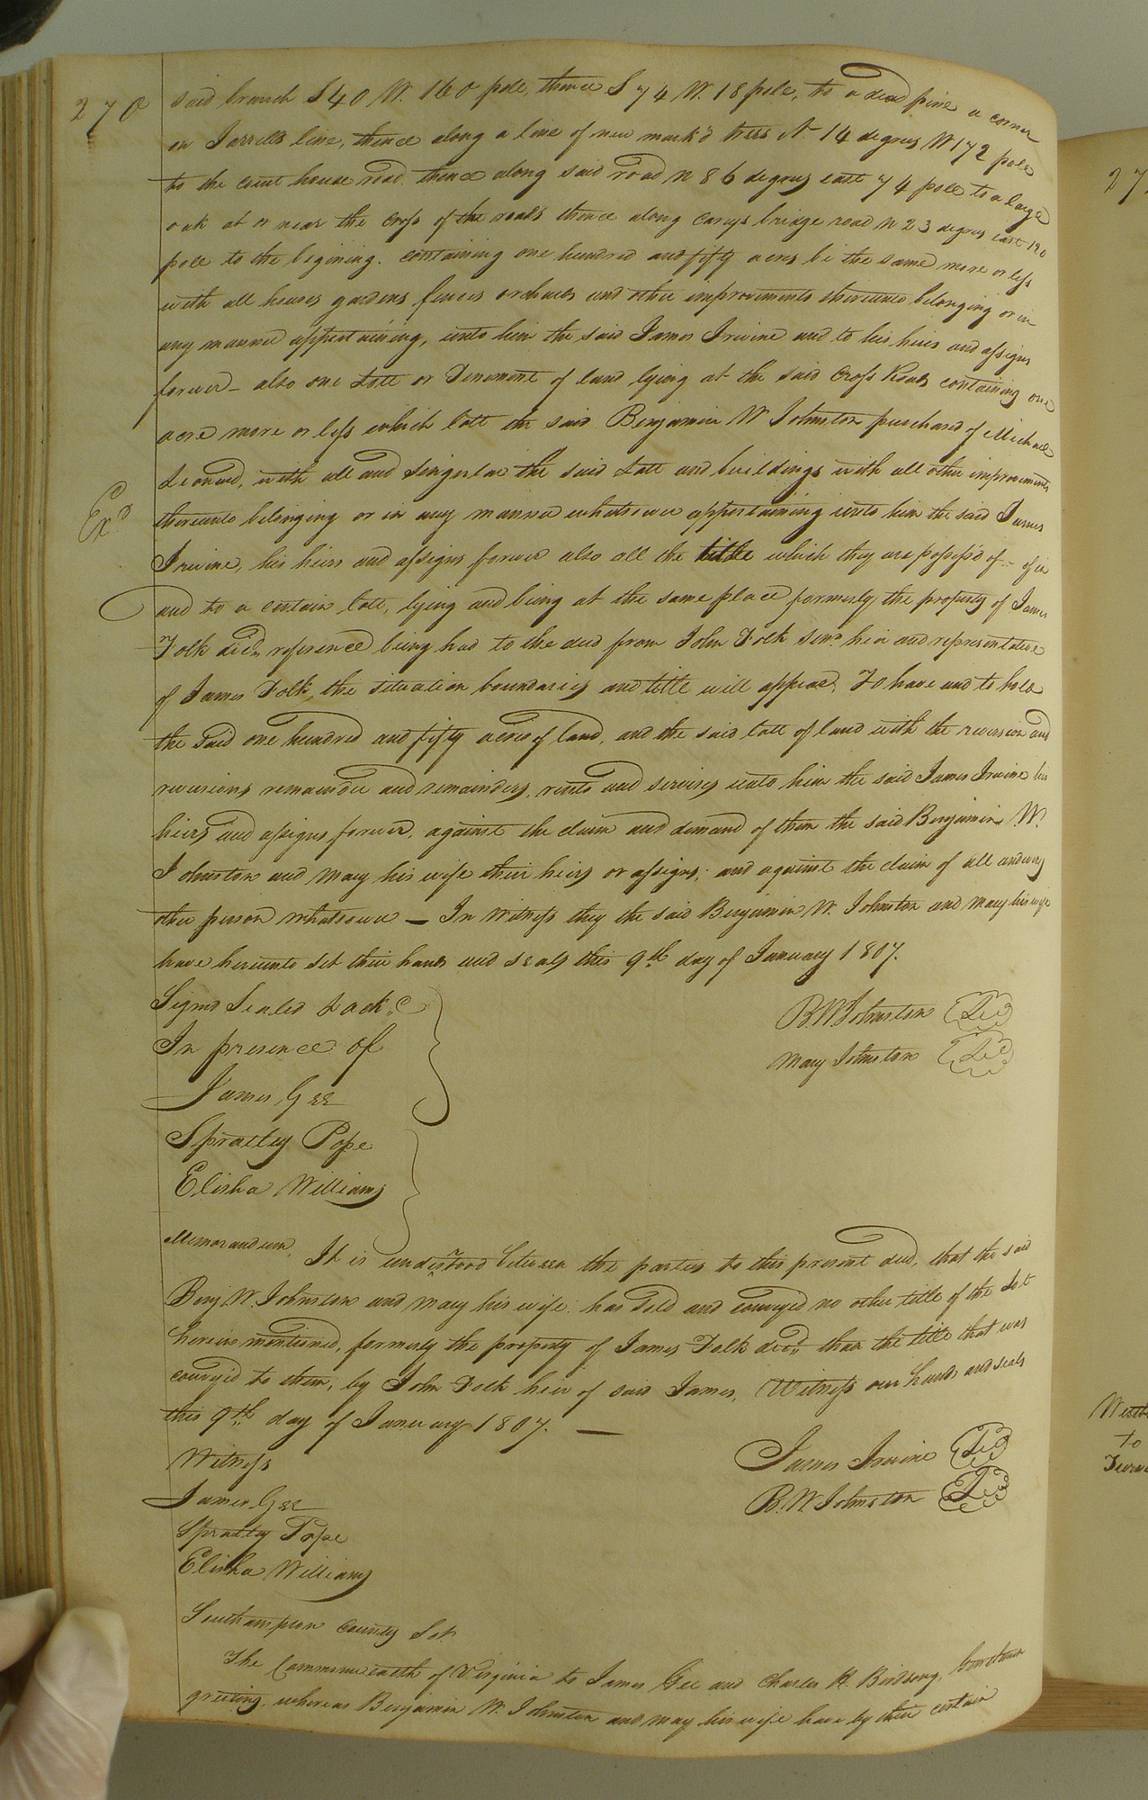 270
said branch S 40 W. 160 pole, thence S 74 W. 18 pole, to a dead pine a corner
on Jarrells line, thence along a line of new mark'd trees N 14 degrees W 172 pole
to the court house road thence along said road N 86 degrees east 74 pole to a large
oak at or near the Cross of the roads thence along Careys bridge road N 23 degrees east 120
pole to the begining. containing one hundred and fifty acres be the same more or less
with all houses gardens fences orchards and other improvements thereunto belonging or in
any manner appertaining, unto him the said James Irvine and to his heirs and assigns
forever - also one Lott or Tenement of land lying at the said Cross Roads containing one
acre more or less which lott the said Benjamin W Johnston purchased of Michael
Leonard, with all and singular the said Lott and buildings with all other improvements
Exd
thereunto belonging or in any manner whatsoever appertaining unto him the said James
Irvine, his heirs and assigns forever also all the title which they are possess'd of - of in
and to a certain lott, lying and being at the same place formerly the property of James
Folk decd. reference being had to the deed from John Folk senr. heir and representative
of James Folk, the situation boundaries and title will appear, To have and to hold
the said one hundred and fifty acres of land, and the said lott of land with the reversion and
reversions remainder and remainders, rents and services unto him the said James Irvine his
heirs and assigns forever, against the claim and demand of them the said Benjamin W.
Johnston and Mary his wife their heirs or assigns; and against the claim of all and every
other person whatsoever — In Witness they the said Benjamin W. Johnston and Mary his wife
have hereunto set their hands and seals this 9th day of January 1807.
Signd Sealed & ackd
In presence of
James Gee
Spratley Pope
Elisha Williams
B. W Johnston
Mary Johnston
Memorandum, It is understood between the parties to this present deed, that the said
Benj W. Johnston and Mary his wife. has sold and conveyed no other title of the Lot
herein mentioned, formerly the property of James Folk decd. than the title that was
convey'd to them, by John Folk heir of said James, Witness our hands and seals
this 9th day of January 1807. —
Witness
James Gee
Spratley Pope
Elisha Williams
James Irvine
B. W Johnston
Southampton County Sct.
The Commonwealth of Virginia to James Gee and Charles H. Birdsong,
greeting, whereas Benjamin W. Johnston and Mary his wife have by their certain
27
to